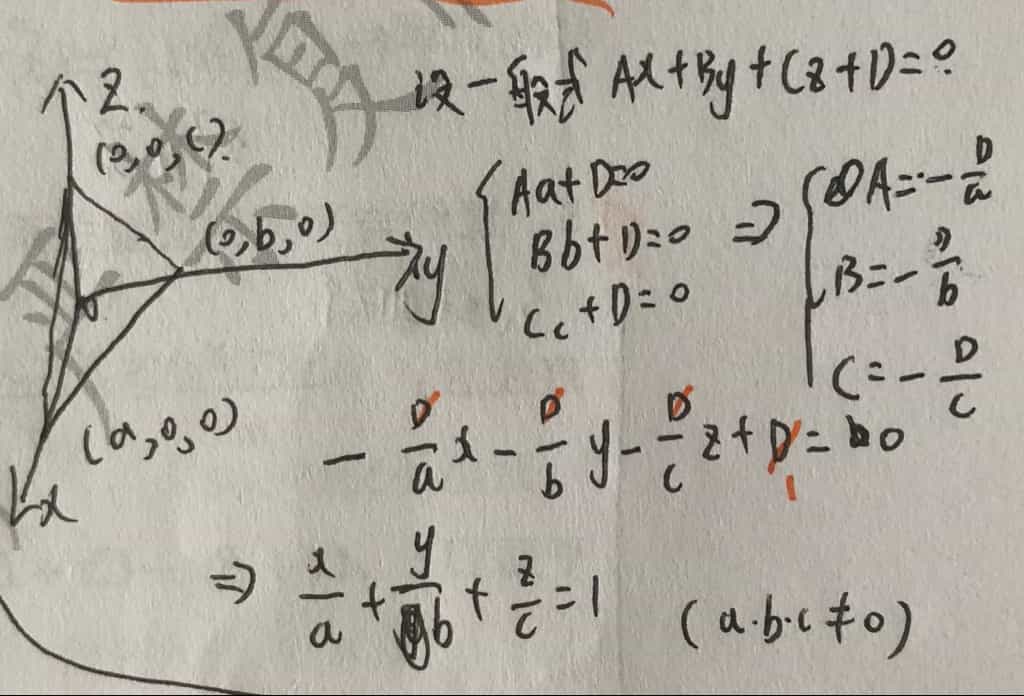 z
(0,0,c)
(0,b,0)
y
(a,0,0)
x
设一般式 Ax+By+Cz+D=0
Aa+D=0
Bb+D=0
Cc+D=0
⇒
A=-D/a
B=-D/b
C=-D/c
-D/a x - D/b y - D/c z + D = 0
1
⇒ x/a + y/b + z/c = 1 (a·b·c≠0)